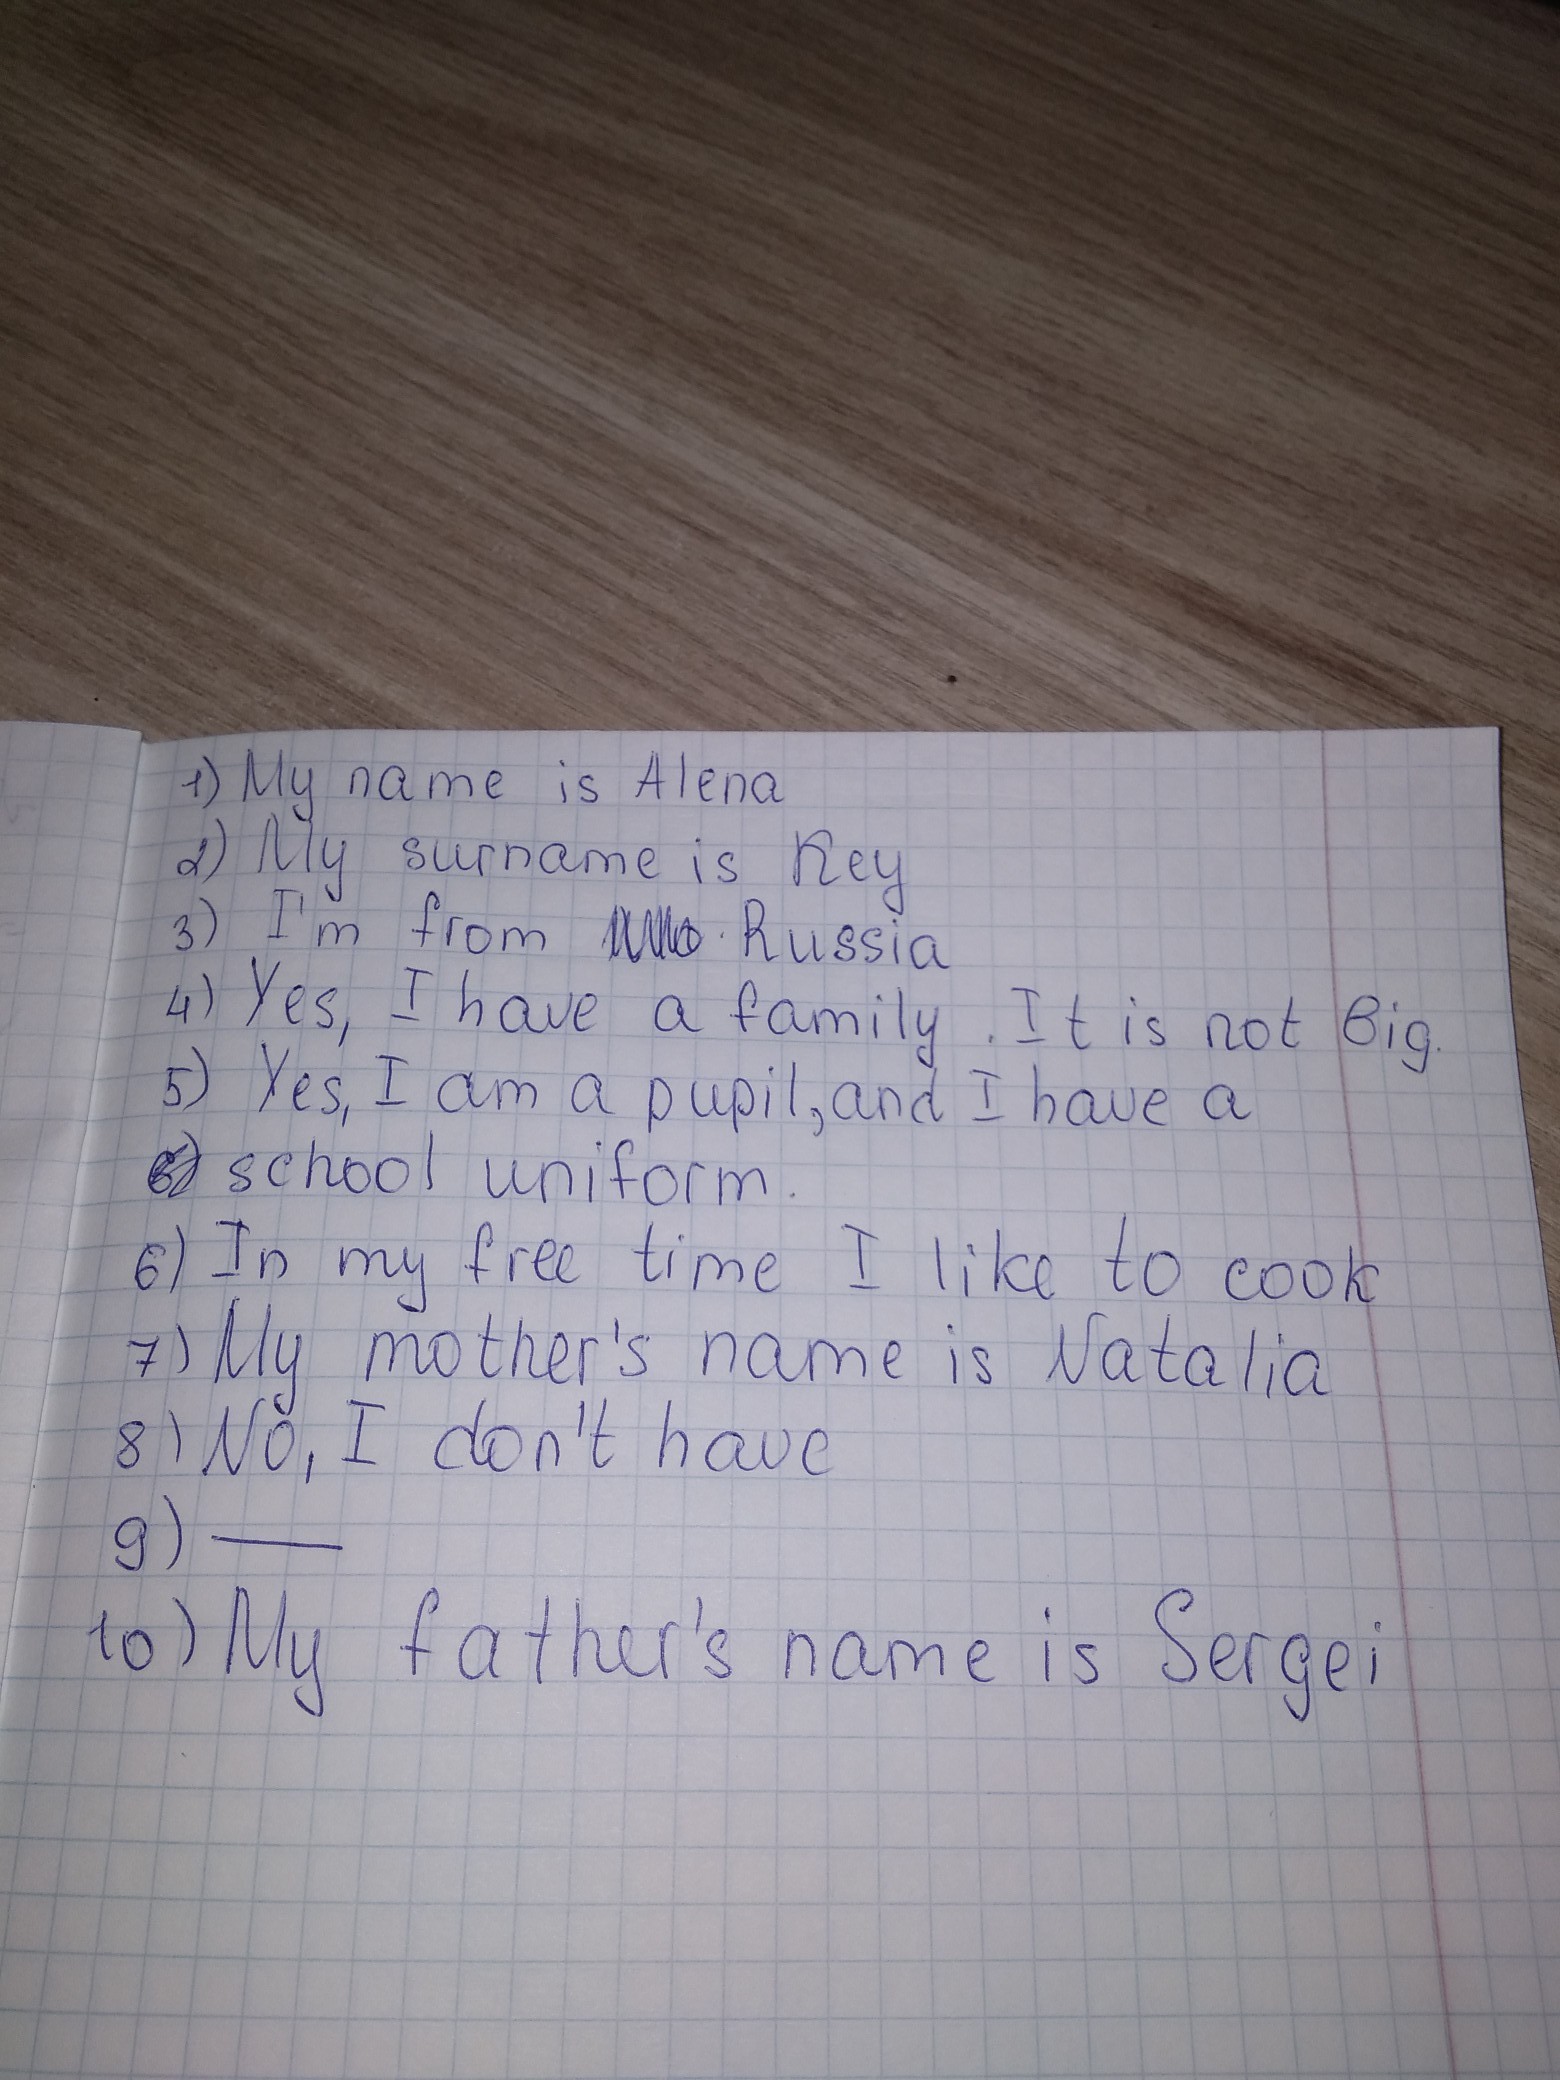 1) My name is Alena
2) My surname is Key
3) I'm from Russia
4) Yes, I have a family. It is not big.
5) Yes, I am a pupil, and I have a
school uniform.
6) In my free time I like to cook
7) My mother's name is Natalia
8) No, I don't have
9) —
10) My father's name is Sergei